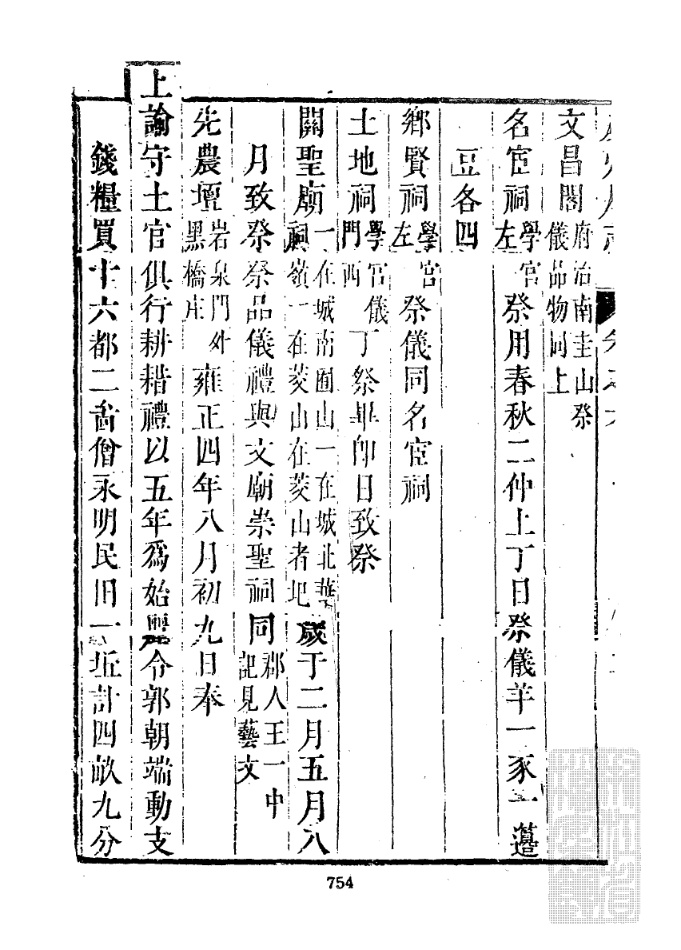 文昌閣府治南圭山祭儀品物同上
名宦祠學宮左祭用春秋二仲上丁日祭儀羊一豕一籩
豆各四
鄉賢祠學宮左祭儀同名宦祠
土地祠學宮儀門西丁祭畢即日致祭
關聖廟一在城南囿山一在城北華祠嶺一在菱山在菱山者圯歲于二月五月八
月致祭祭品儀禮與文廟崇聖祠同郡人王一中記見藝文
先農壇岩泉門外黑橋庄雍正四年八月初九日奉
上諭守土官俱行耕耤禮以五年為始麗令郭朝端動支
錢糧買十六都二啚僧永明民田一坵計四畝九分
754